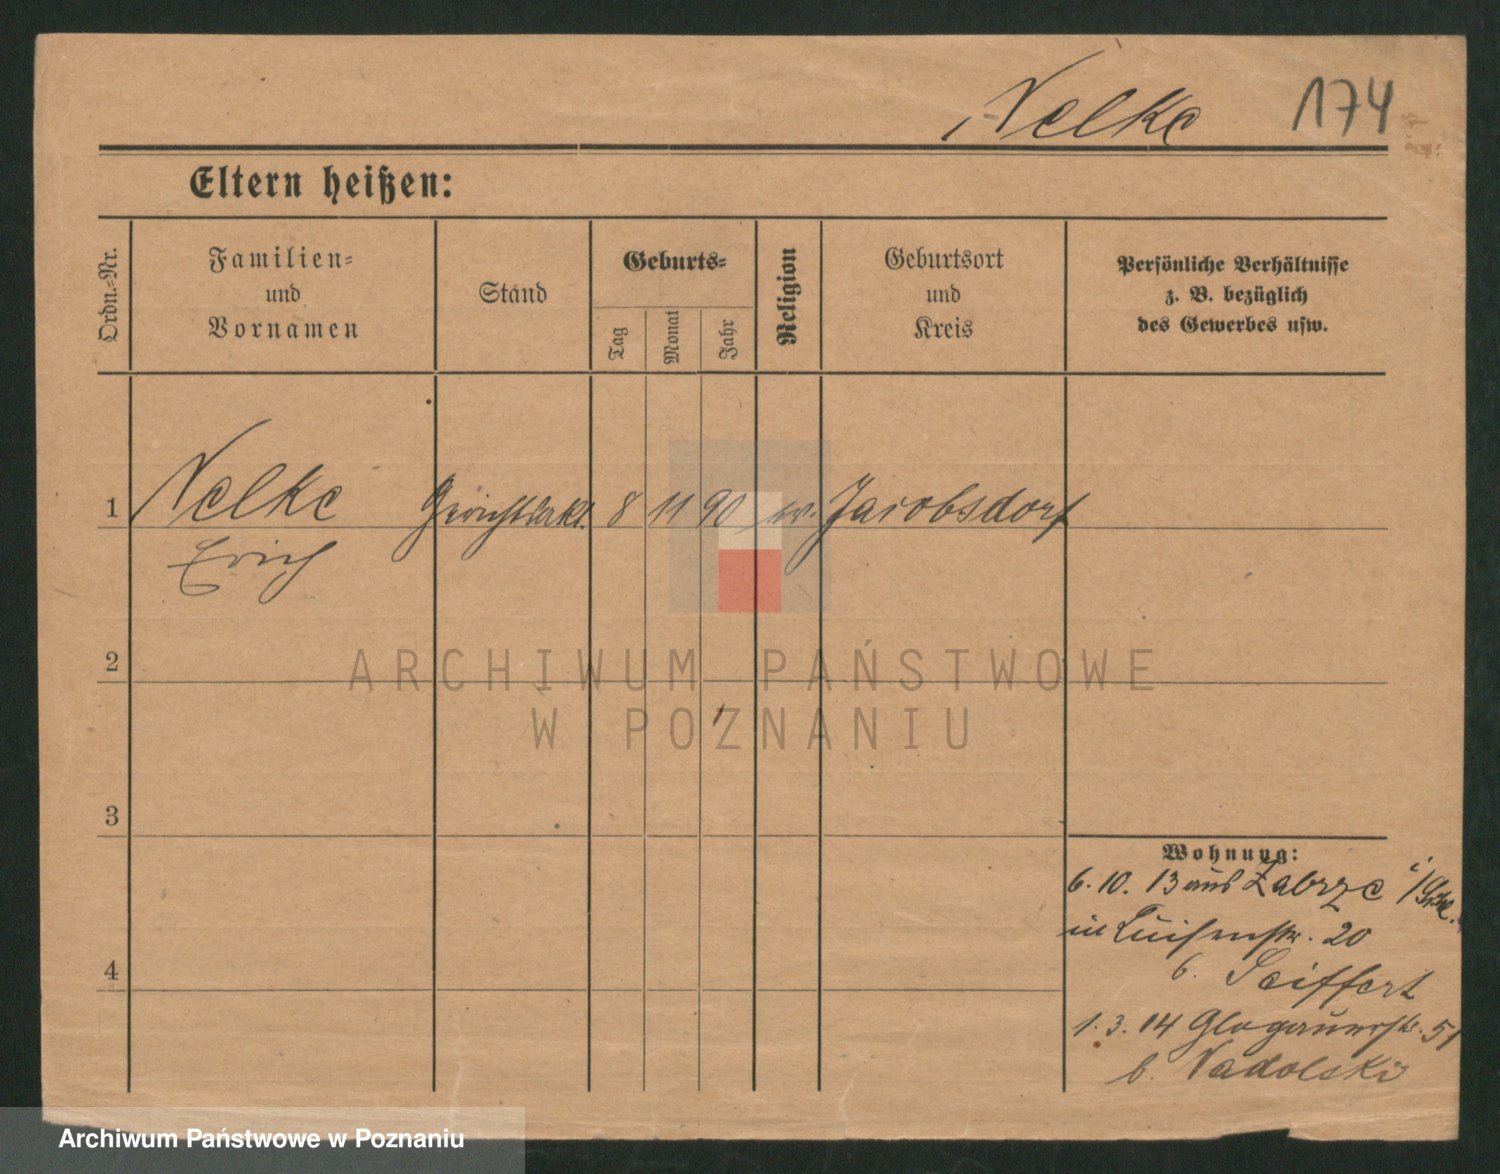 Nelke 174
Eltern heißen:
Ordn.-Nr.
Familien-
und
Vornamen
Stand
Geburts-
Tag
Monat
Jahr
Religion
Geburtsort
und
Kreis
Persönliche Verhältnisse
z. B. bezüglich
des Gewerbes usw.
1 Nelke 8 11 90 Jacobsdorf
Erich
2
3
4
Wohnung:
6. 10. 13 aus Zabrze
in Luisenstr. 20
b. Seiffert
1. 3. 14 Glogauerstr. 51
b. Nadolski
ARCHIWUM PAŃSTWOWE
W POZNANIU
Archiwum Państwowe w Poznaniu